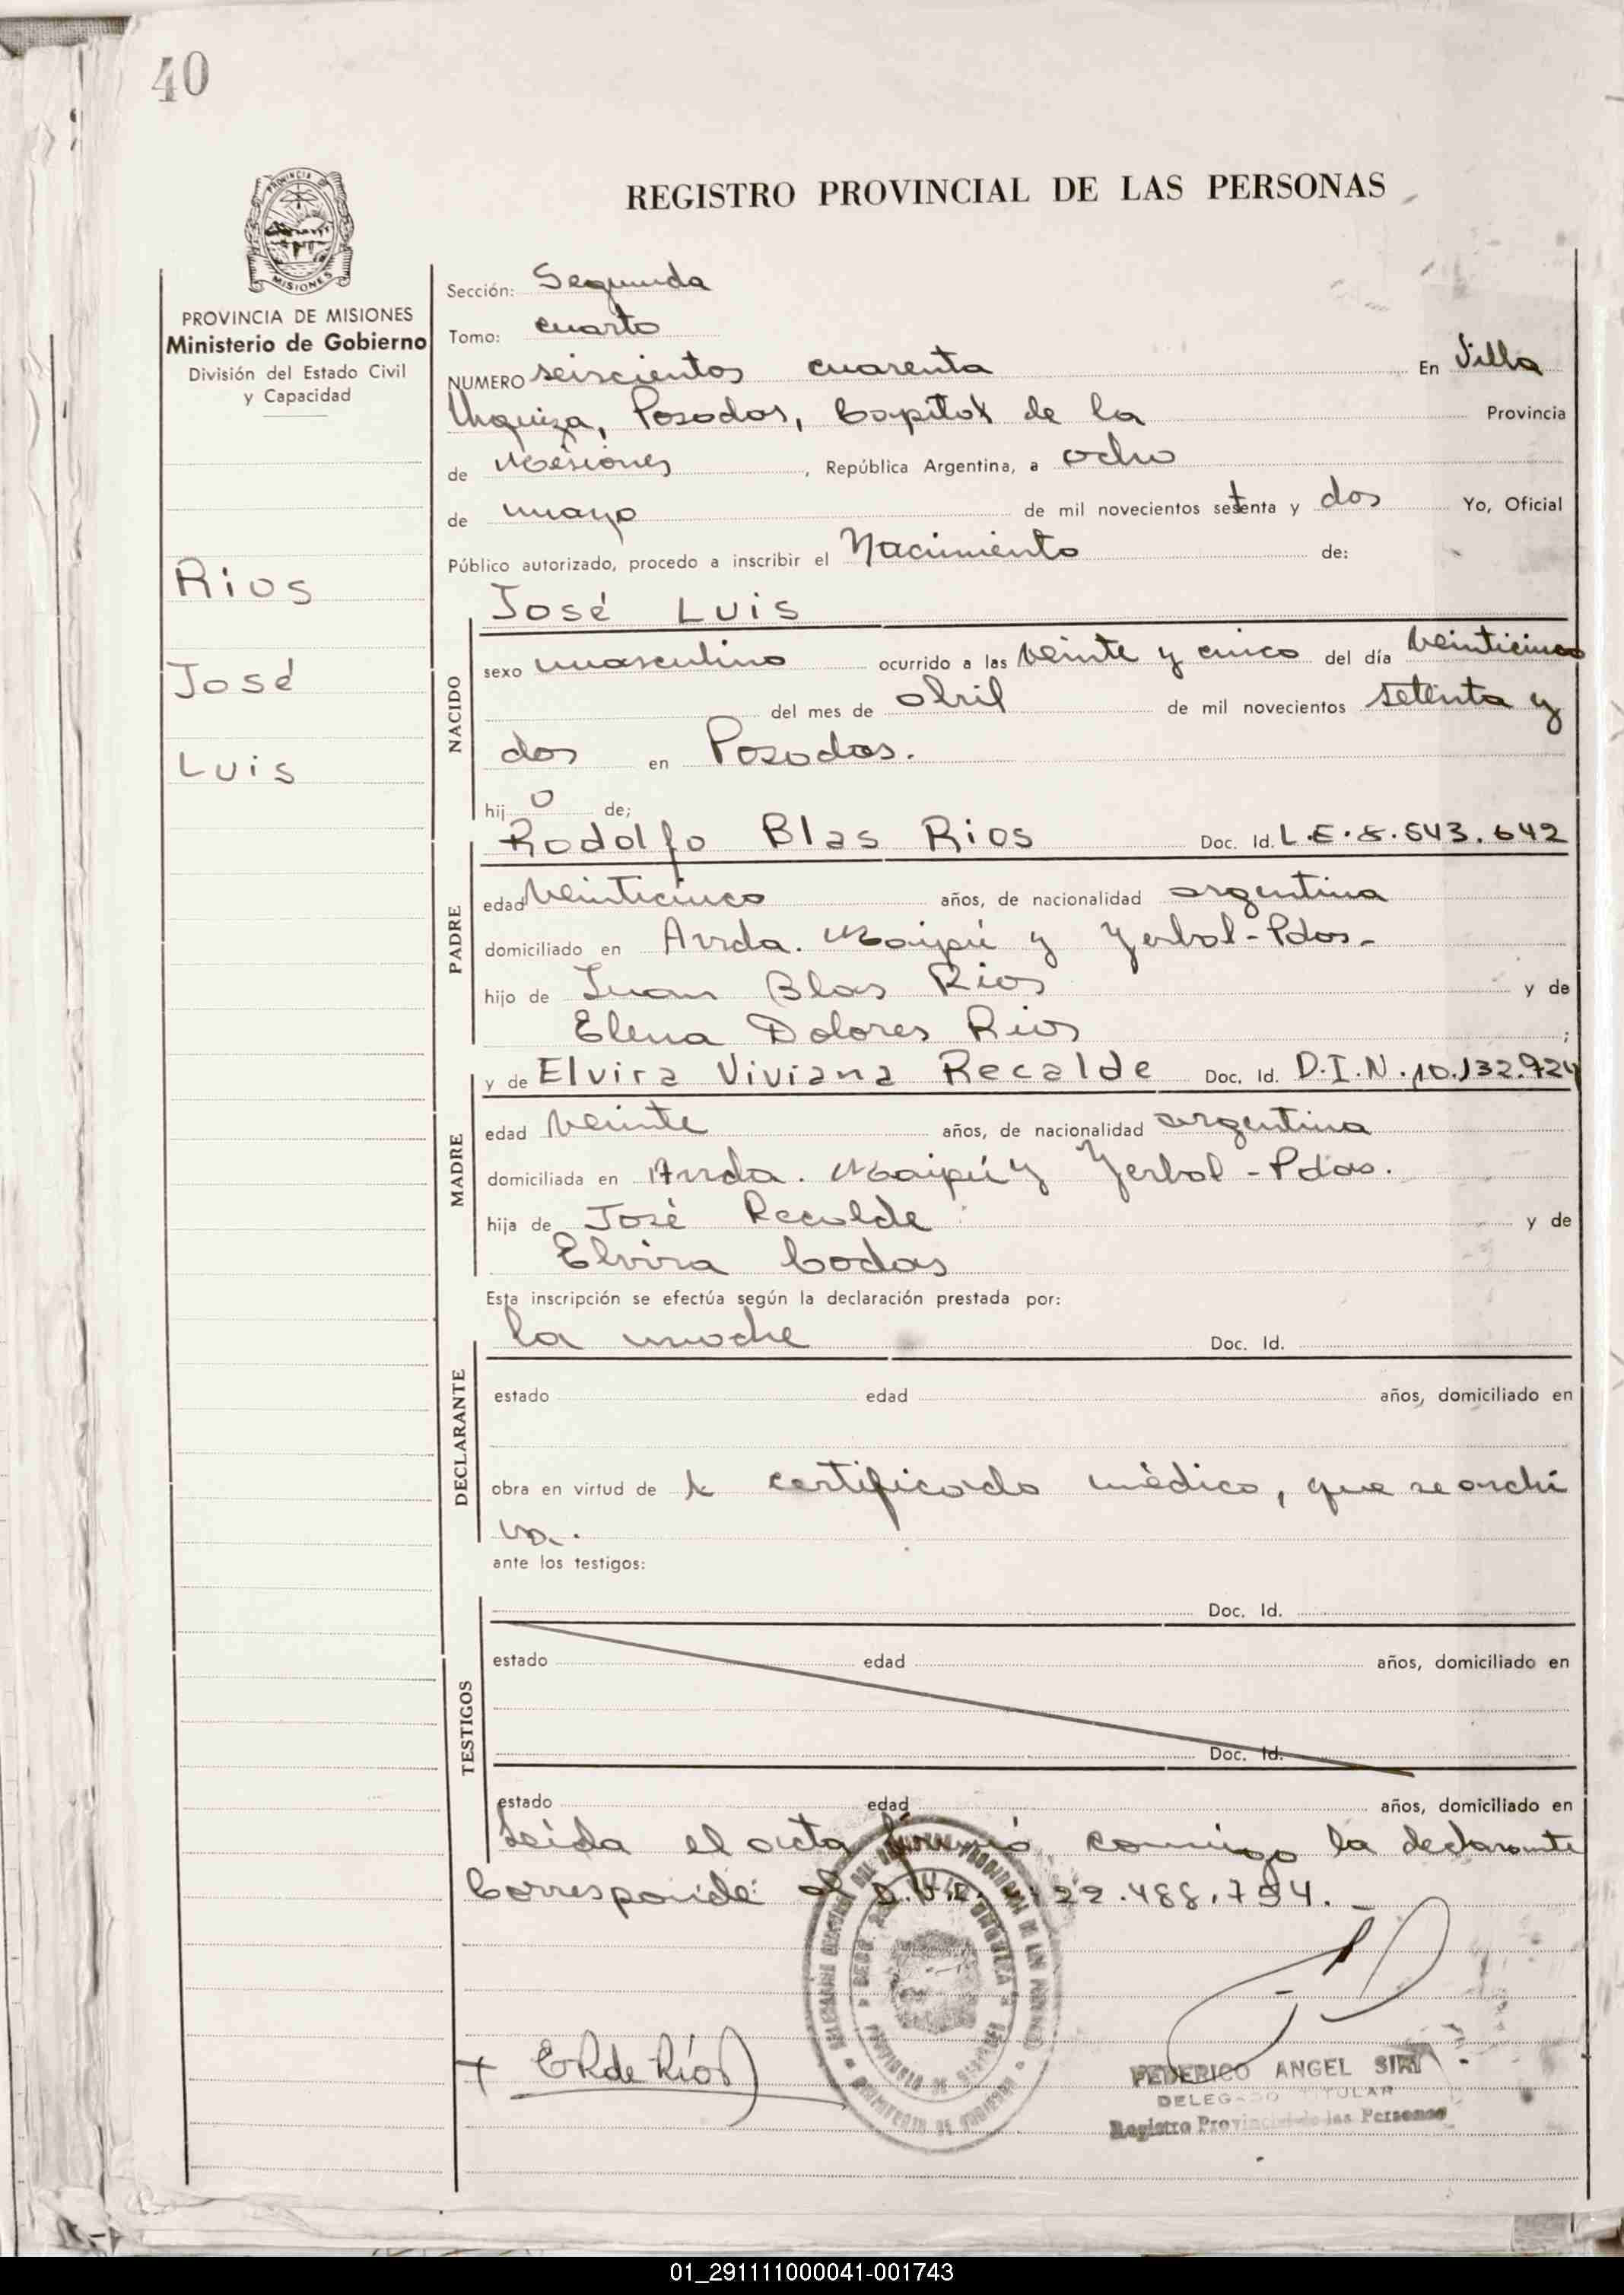 40
REGISTRO PROVINCIAL DE LAS PERSONAS
PROVINCIA DE MISIONES
Ministerio de Gobierno
División del Estado Civil
y Capacidad
Rios
José
Luis
Sección: Segunda
Tomo: cuarto
NUMERO seiscientos cuarenta En Villa
Urquiza, Posadas, Capital de la Provincia
de Misiones, República Argentina, a ocho
de mayo de mil novecientos setenta y dos Yo, Oficial
Público autorizado, procedo a inscribir el Nacimiento de:
José Luis
NACIDO
sexo masculino ocurrido a las veinte y cinco del día veinticinco
del mes de abril de mil novecientos setenta y
dos en Posadas.
hijo de;
PADRE
Rodolfo Blas Rios Doc. Id. L.E.8.543.642
edad veinticinco años, de nacionalidad argentina
domiciliado en Avda. Maipú y Yerbal-Pdas-
hijo de Juan Blas Rios y de
Elena Dolores Rios ;
MADRE
y de Elvira Viviana Recalde Doc. Id. D.I.N.10.132.924
edad veinte años, de nacionalidad argentina
domiciliada en Avda. Maipú y Yerbal-Pdas.
hija de José Recalde y de
Elvira Codas
Esta inscripción se efectúa según la declaración prestada por:
DECLARANTE
la madre Doc. Id.
estado edad años, domiciliado en
obra en virtud de certificado médico, que se archi
va.
ante los testigos:
TESTIGOS
Doc. Id.
estado edad años, domiciliado en
Doc. Id.
estado edad años, domiciliado en
Leída el acta firmó conmigo la declarante
Corresponde: 22.488.754.
ERde Ríos
FEDERICO ANGEL SIRI
DELEGADO TITULAR
Registro Provincial de las Personas
01_291111000041-001743